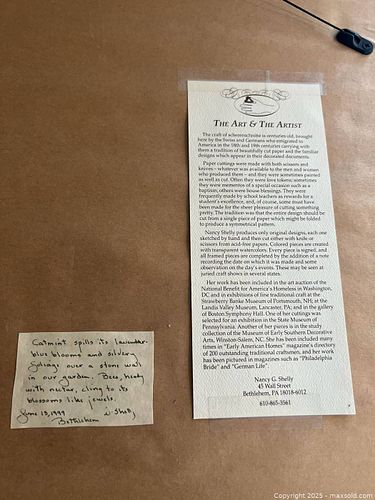 THE ART & THE ARTIST
The craft of scherenschnitte is centuries old, brought
here by the Swiss and Germans who emigrated to
America in the 18th and 19th centuries carrying with
them a tradition of beautifully cut paper and the familiar
designs which appear in their decorated documents.
Paper cuttings were made with both scissors and
knives - whatever was available to the men and women
who produced them - and they were sometimes painted
as well as cut. Often they were love tokens; sometimes
they were mementos of a special occasion such as a
baptism; others were house blessings. They were
frequently made by school teachers as rewards for a
student's excellence, and, of course, some must have
been made for the sheer pleasure of cutting something
pretty. The tradition was that the entire design should be
cut from a single piece of paper which might be folded
to produce a symmetrical pattern.
Nancy Shelly produces only original designs, each one
sketched by hand and then cut either with knife or
scissors from acid-free papers. Colored pieces are created
with transparent watercolors. Every piece is signed, and
all framed pieces are completed by the addition of a note
recording the date on which it was made and some
observation on the day's events. These may be seen at
juried craft shows in several states.
Her work has been included in the art auction of the
National Benefit for America's Homeless in Washington,
DC and in exhibitions of fine traditional craft at the
Strawberry Banke Museum of Portsmouth, NH; at the
Landis Valley Museum, Lancaster, PA; and in the gallery
of Boston Symphony Hall. One of her cuttings was
selected for an exhibition in the State Museum of
Pennsylvania. Another of her pieces is in the study
collection of the Museum of Early Southern Decorative
Arts, Winston-Salem, NC. She has been included many
times in "Early American Homes" magazine's directory
of 200 outstanding traditional craftsmen, and her work
has been pictured in magazines such as "Philadelphia
Bride" and "German Life".
Nancy G. Shelly
45 Wall Street
Bethlehem, PA 18018-6012
610-865-3561
Catmint spills its lavender-
blue blooms and silvery
foliage over a stone wall
in our garden. Bees, heady
with nectar, cling to its
blossoms like jewels.
June 15, 1999 n. Shelly
Bethlehem
Copyright 2025 - maxsold.com